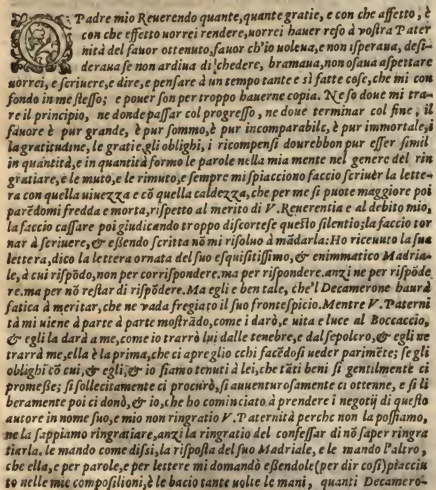 O Padre mio Reuerendo quante, quante gratie, e con che affetto, è
con che effetto uorrei rendere, uorrei hauer reso à vostra Pater
nità del fauor ottenuto, fauor ch'io uoleua, e non isperaua, desi-
deraua se non ardiua di chedere, bramaua, non osaua aspettare
uorrei, e scriuere, e dire, e pensare à un tempo tante e sì fatte cose, che mi con
fondo in me stesso; e pouer son per troppo hauerne copia. Ne so doue mi tra-
re il principio, ne donde passar col progresso, ne doue terminar col fine, il
fauore è pur grande, è pur sommo, è pur incomparabile, è pur immortale, i
la gratitudine, le gratie, gli oblighi, i ricompensi dourebbon pur esser simil
in quantità, e in quantità formo le parole nella mia mente nel genere del rin
gratiare, e le muto, e le rimuto, e sempre mi spiacciono faccio scriuer la lette-
ra con quella uiuezza e cō quella caldezza, che per me si puote maggiore poi
parēdomi fredda e morta, rispetto al merito di V. Reuerentia e al debito mio,
la faccio cassare poi giudicando troppo discortese questo silentio; la faccio tor
nar à scriuere, & essendo scritta nō mi risoluo à mādarla: Ho riceuuto la sua
lettera, dico la lettera ornata del suo esquisitissimo, & enimmatico Madria-
le, à cui rispōdo, non per corrispondere. ma per rispondere. anzi ne per rispōde
re. ma per nō restar di rispōdere. Ma egli e ben tale, che'l Decamerone haurà
fatica à meritar, che ne vada fregiato il suo frontespicio. Mentre V. Paterni
tà mi uiene à parte à parte mostrādo, come i darò, e uita e luce al Boccaccio,
& egli la darà a me, come io trarrò lui dalle tenebre, e dal sepolcro, & egli ne
trarrà me, ella è la prima, che ci apre glio cchi facēdosi ueder parimēte; se gli
oblighi tō cui, & egli, & io siamo tenuti à lei, che tāti beni sì gentilmente ci
promeßes; sì sollecitamente ci procurò, sì auuenturosamente ci ottenne, e sì li
beramente poi ci donò, & io, che ho cominciato à prendere i negotij di questo
autore in nome suo, e mio non ringratio V. Paternità perche non la possiamo,
ne la sappiamo ringratiare, anzi la ringratio del confessar di nō saper ringra
tiarla. le mando come dissi, la risposta del suo Madriale, e le mando l'altro,
che ella, e per parole, e per lettere mi domandò eßendole (per dir così) piacciu
to nelle mie compositioni, è le bacio tante uolte le mani, quanti Decamero-